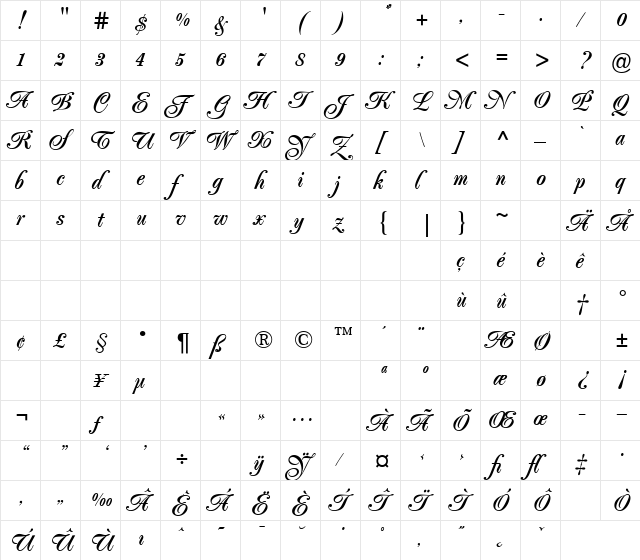 ! " # $ % & ' ( ) * + , - . / 0
1 2 3 4 5 6 7 8 9 : ; < = > ? @
A B C E F G H I J K L M N O P Q
R S T U V W X Y Z [ \ ] ^ _ ` a
b c d e f g h i j k l m n o p q
r s t u v w x y z { | } ~ Ä Å
ç é è ê
ù û † °
¢ £ § • ¶ ß ® © ™ ´ ¨ Æ Ø ±
¥ µ ª º æ ø ¿ ¡
¬ ƒ « » … À Ã Õ Œ œ – —
“ ” ‘ ’ ÷ ÿ Ÿ ⁄ ¤ ‹ › ﬁ ﬂ ‡ ·
‚ „ ‰ Â Ê Á Ë È Í Î Ï Ì Ó Ô Ò
Ú Û Ù ı ˆ ˜ ¯ ˘ ˙ ˚ ¸ ˝ ˛ ˇ